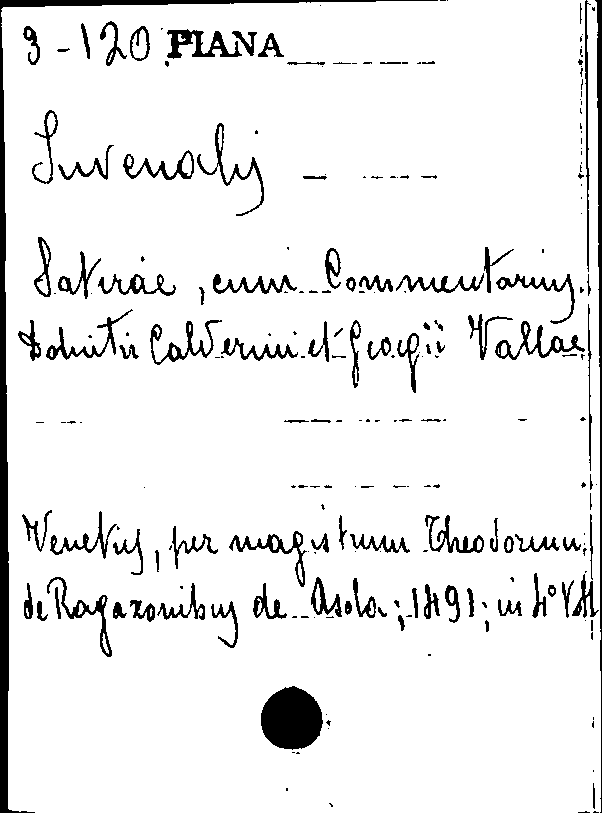 3-120 PIANA
Juvenalis
Satirae, cum Commentariis
Domitii Calderini et Georgii Vallae
Venetiis, per magistrum Theodorum
de Ragazonibus de Asola; 1491; in 4°